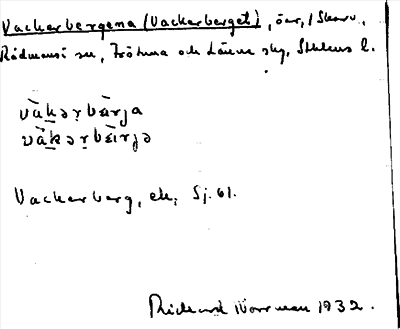 Vackerbergena (Vackerberget), öar, i Skarv,
Rådmansö sn, Frötuna och Länna skg, Sthlms l.
và̀kərbèrja
và̀kərbèrjə
Vackerberg, ek, Sj. 61.
Rickard Norrman 1932.